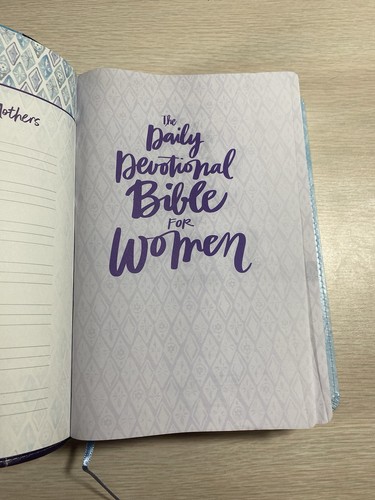 Mothers
The
Daily
Devotional
Bible
FOR
Women